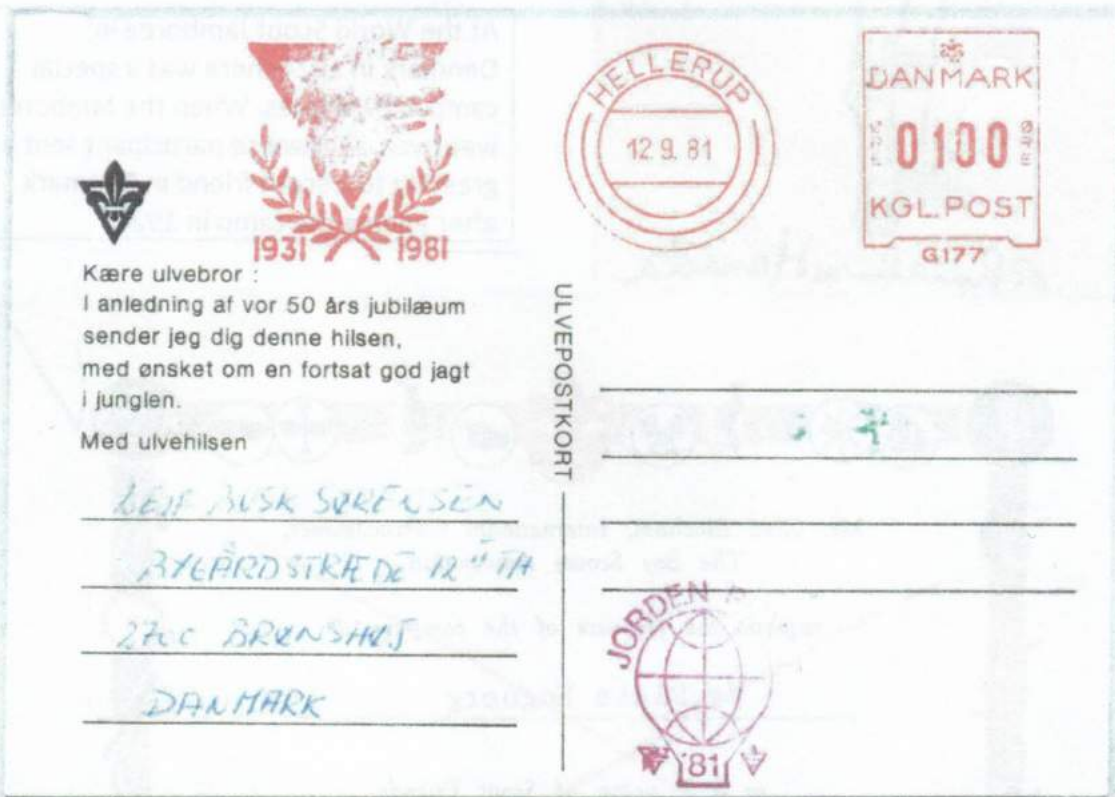 1931 1981
HELLERUP
12.9.81
DANMARK
0100
KGL.POST
G177
Kære ulvebror :
I anledning af vor 50 års jubilæum
sender jeg dig denne hilsen,
med ønsket om en fortsat god jagt
i junglen.
Med ulvehilsen
LEIF BUSK SØRENSEN
BYGÅRDSTRÆDE 12
2700 BRØNSHØJ
DANMARK
ULVEPOSTKORT
JORDEN
'81